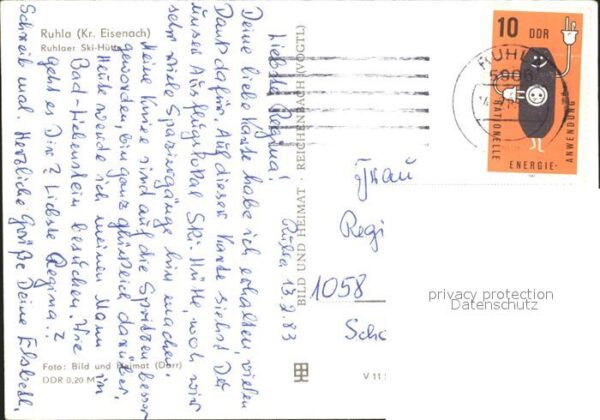 Ruhla (Kr. Eisenach)
Ruhlaer Ski-Hütte
Ruhla 13.2.83
Liebste Regina!
Deine liebe Karte habe ich erhalten, vielen
Dank dafür. Auf dieser Karte siehst Du
unser Ausflugslokal Ski-Hütte, wohin wir
sehr viele Spaziergänge hin machen.
Meine Knie sind auf die Spritzen besser
geworden, bin ganz glücklich darüber.
Heute werde ich meinen Mann im
Bad-Liebenstein besuchen. Wie
geht es Dir? Liebste Regina?
Schreib mal. Herzliche Grüße Deine
Foto: Bild und Heimat (Dörr)
DDR 0,20 M
BILD UND HEIMAT REICHENBACH (VOGTL)
V 11
10 DDR
RATIONELLE ENERGIE-ANWENDUNG
RUHLA
5906
Frau
Regi
1058
Schö
privacy protection
Datenschutz